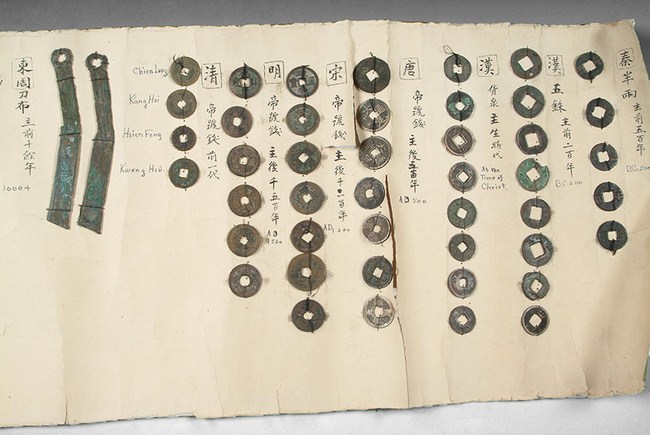 秦 半兩 主前五百年
漢 五銖 主前二百年
BC 200
漢 貨泉 主生時代
At the
Time of
Christ
唐 帝號錢 主後五百年
AD 500
宋 帝號錢 主後千二百年
明 帝號錢 主後千五百年
AD
1500
清 帝號錢 前一代
Chien Lung
Kang Hsi
Hsien Feng
Kwang Hsü
東周刀布 主前千餘年
1000+